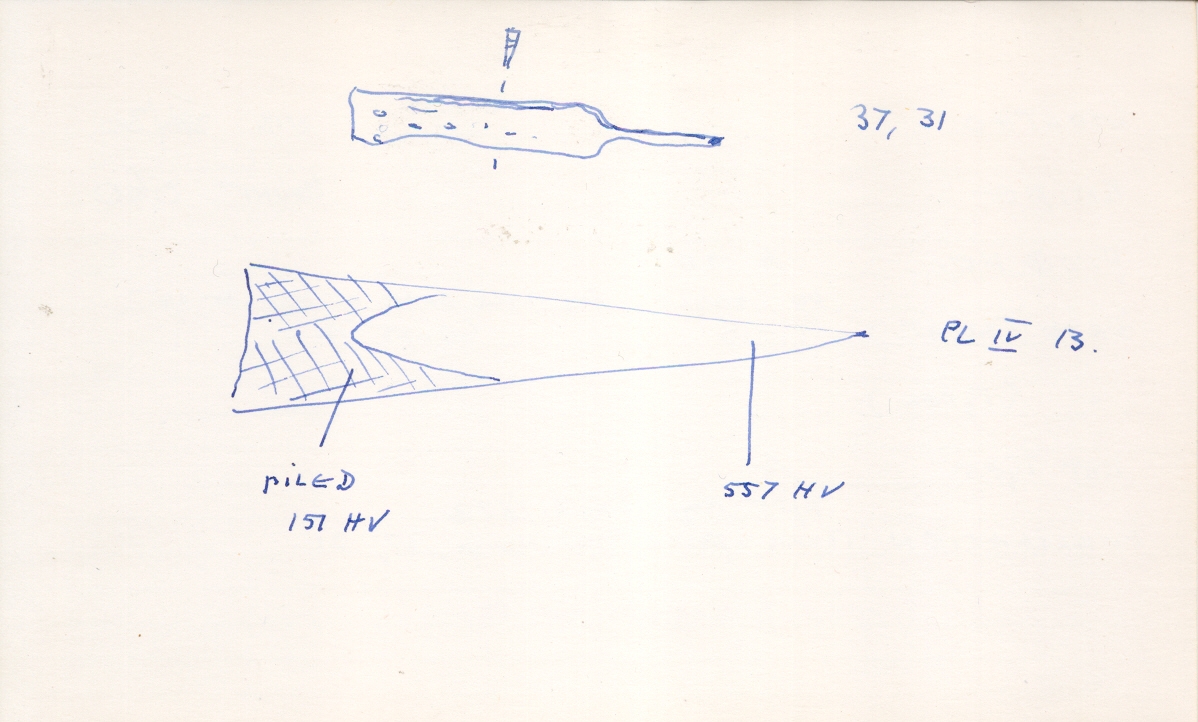 37, 31
PL IV 13.
piLED
151 HV
557 HV